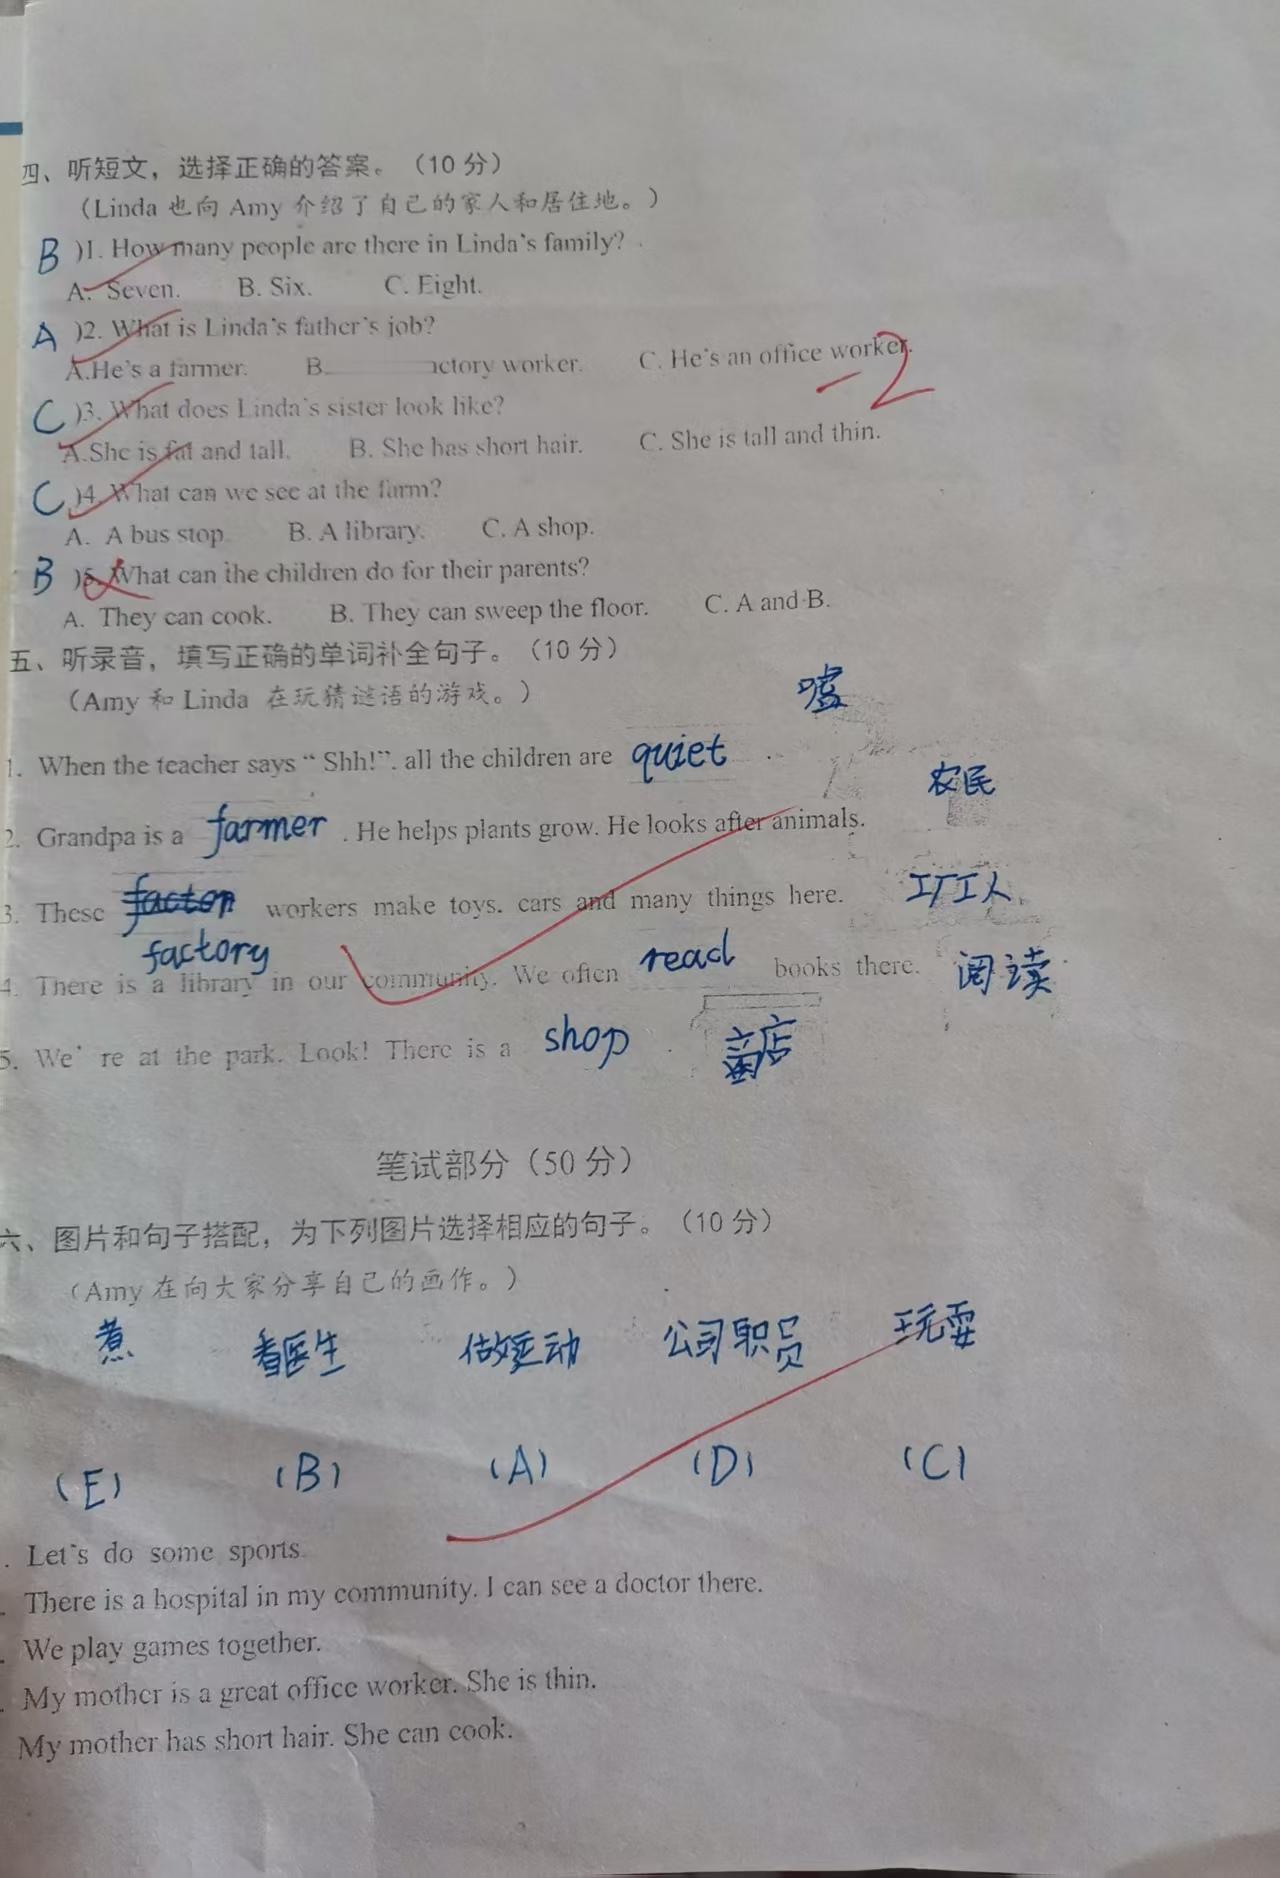 四、听短文，选择正确的答案。（10 分）
（Linda 也向 Amy 介绍了自己的家人和居住地。）
B )1. How many people are there in Linda's family?
A. Seven. B. Six. C. Eight.
A )2. What is Linda's father's job?
A.He's a farmer. B. actory worker. C. He's an office worker.
-2
C )3. What does Linda's sister look like?
A.She is fat and tall. B. She has short hair. C. She is tall and thin.
C )4. What can we see at the farm?
A. A bus stop. B. A library. C. A shop.
B )5. What can the children do for their parents?
A. They can cook. B. They can sweep the floor. C. A and B.
五、听录音，填写正确的单词补全句子。（10 分）
（Amy 和 Linda 在玩猜谜语的游戏。）
嘘
1. When the teacher says “ Shh!”. all the children are quiet .
农民
2. Grandpa is a farmer . He helps plants grow. He looks after animals.
3. These workers make toys. cars and many things here. 工厂工人
factory
4. There is a library in our community. We often read books there. 阅读
5. We' re at the park. Look! There is a shop . 商店
笔试部分（50 分）
六、图片和句子搭配，为下列图片选择相应的句子。（10 分）
（Amy 在向大家分享自己的画作。）
煮 看医生 做运动 公司职员 玩耍
(E) (B) (A) (D) (C)
. Let's do some sports.
. There is a hospital in my community. I can see a doctor there.
. We play games together.
. My mother is a great office worker. She is thin.
My mother has short hair. She can cook.